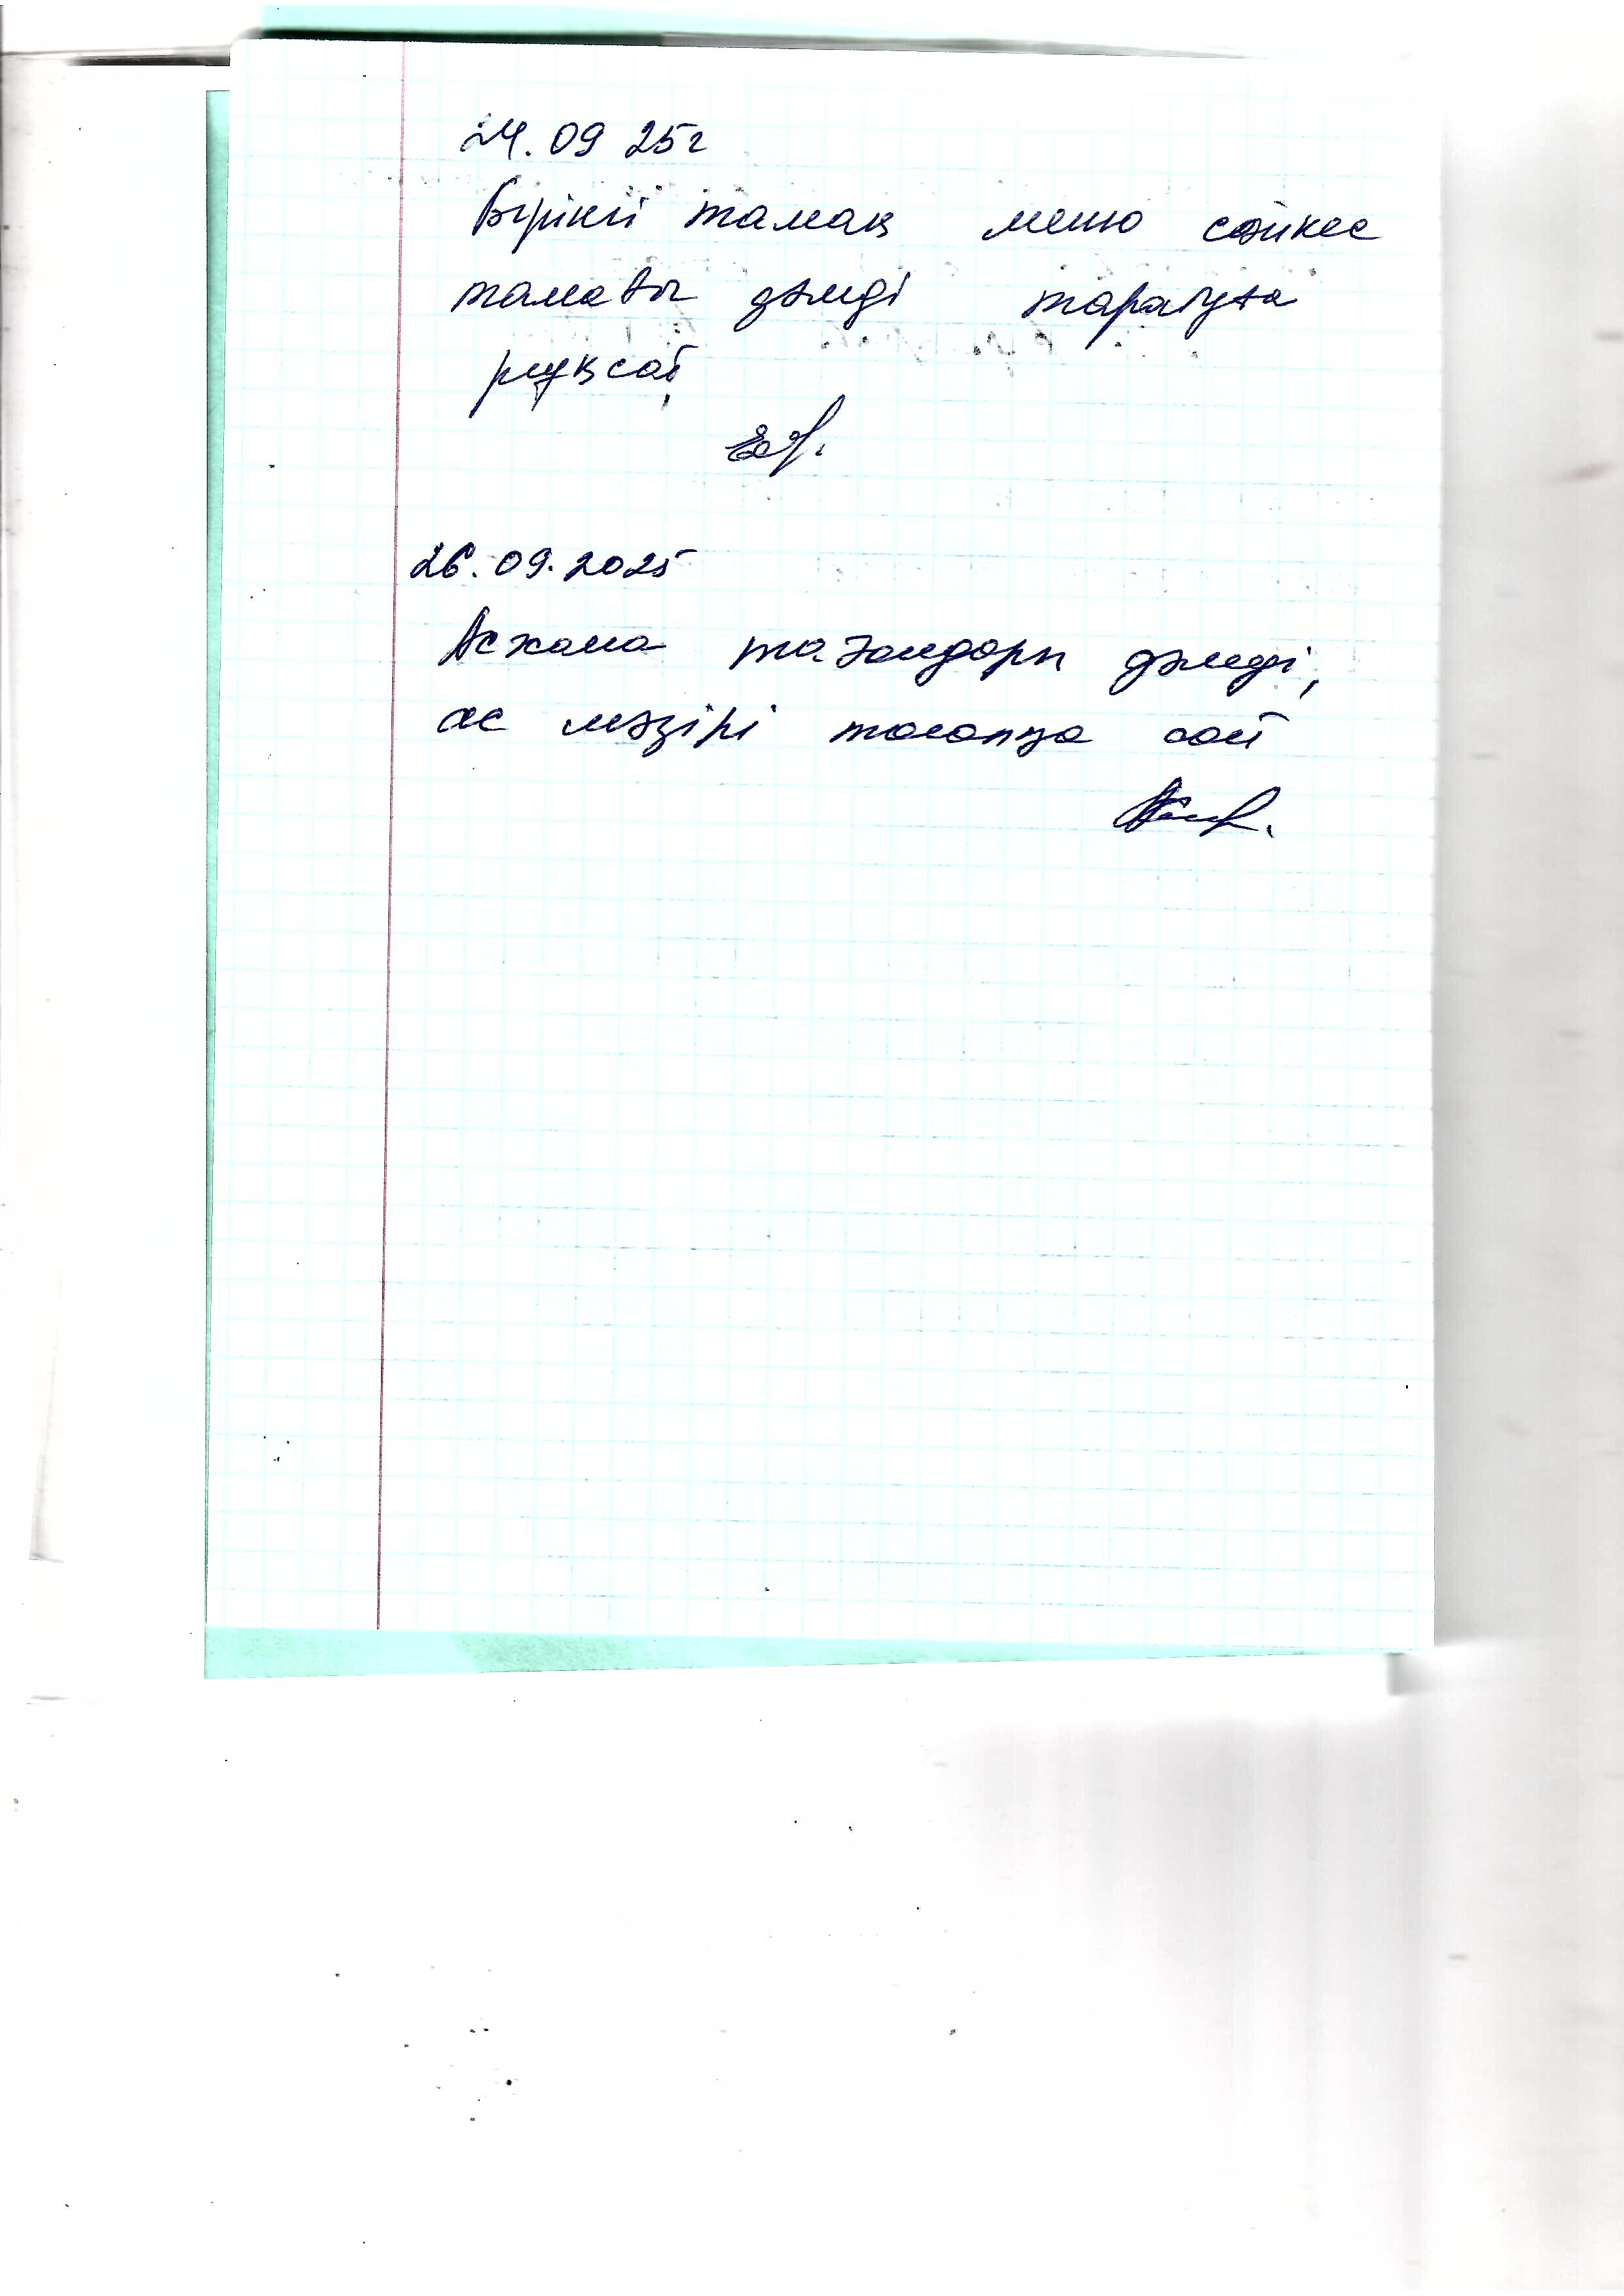 24.09 25г
Бірінші тамақ меню сәйкес
тамағы дәмді таратуға
рұқсат
26.09.2025
Асхана тағамдары дәмді,
ас мәзірі талапқа сай